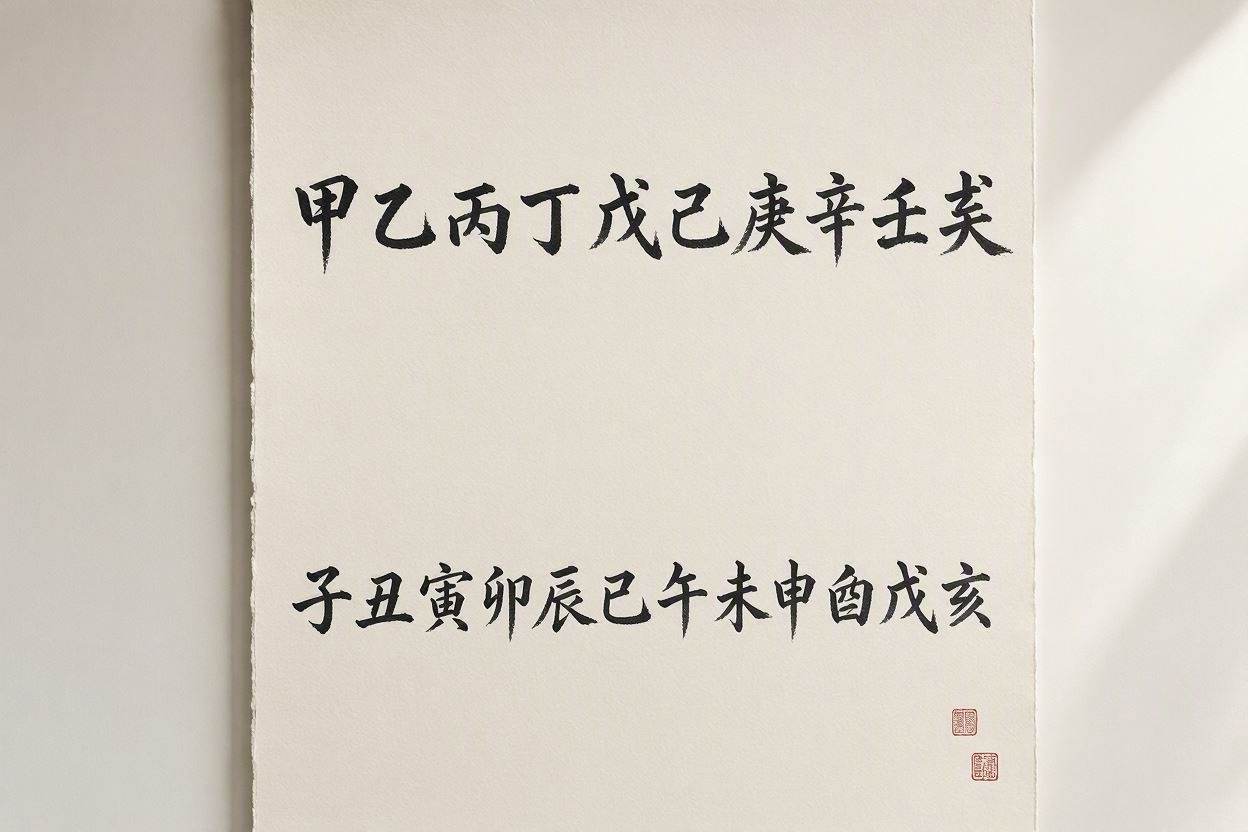 甲乙丙丁戊己庚辛壬
子丑寅卯辰已午未申戊亥